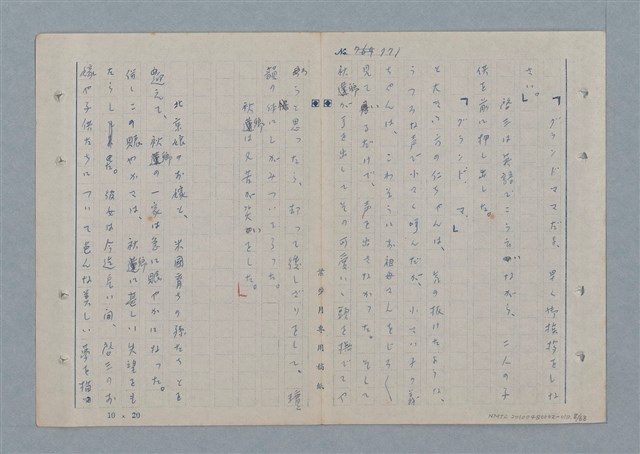 No 769 371
「グランドママだよ、早く御挨拶をしな
さい。」
啓三は英語でこう云いながら、二人の子
供を前に押し出した。
「グランド、マ、」
と大きい方の仁ちゃんは、気の抜けたような、
うつろな声で小さく呼んだが、小さい子の義
ちゃんは、こわそうにお祖母さんをじろじろ
見ているだけで、声を出さなかった。そして
秋蓮が手を出してその可愛いい頭を撫でてや
ろうと思ったら、却って後しざりをして、瓊
韻の洋にしがみついてしまった。
秋蓮は又苦が笑いをした。
北京娘のお嫁と、米国育ちの孫たちとを
迎えて、秋蓮の一家は急に賑やかになった。
併しこの賑やかさは、秋蓮に甚しい失望をも
たらした。彼女は今迄長い間、啓三のお
嫁や子供たちについて色んな美しい夢を描
巫永福専用稿紙
10×20